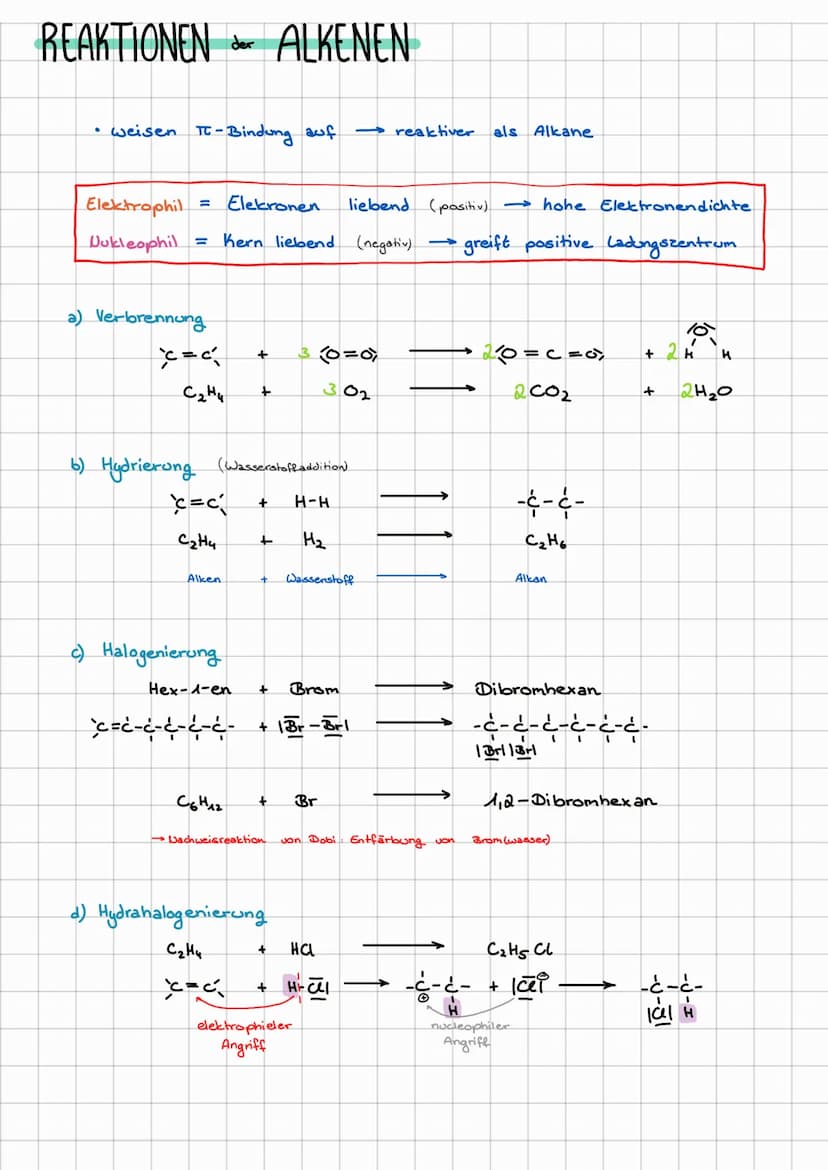 REAKTIONEN der ALKENEN
• weisen π-Bindung auf → reaktiver als Alkane
Elektrophil = Elekronen liebend (positiv) → hohe Elektronendichte
Nukleophil = Kern liebend (negativ) → greift positive Ladungszentrum
a) Verbrennung
C=C + 3 ⟨O=O⟩ → 2⟨O=C=O⟩ + 2 H O H
C₂H₄ + 3O₂ → 2CO₂ + 2H₂O
b) Hydrierung (Wasserstoffaddition)
C=C + H-H → -C-C-
C₂H₄ + H₂ → C₂H₆
Alken + Wasserstoff → Alkan
c) Halogenierung
Hex-1-en + Brom → Dibromhexan
C=C-C-C-C-C- + |Br-Br| → -C-C-C-C-C-C-
|Br| |Br|
C₆H₁₂ + Br → 1,2-Dibromhexan
→ Nachweisreaktion von Dobi: Entfärbung von Brom(wasser)
d) Hydrahalogenierung
C₂H₄ + HCl → C₂H₅Cl
C=C + H-Cl| → -C-C- + |Cl|⊖ → -C-C-
⊕ H |Cl| H
elektrophieler nucleophiler
Angriff Angriff